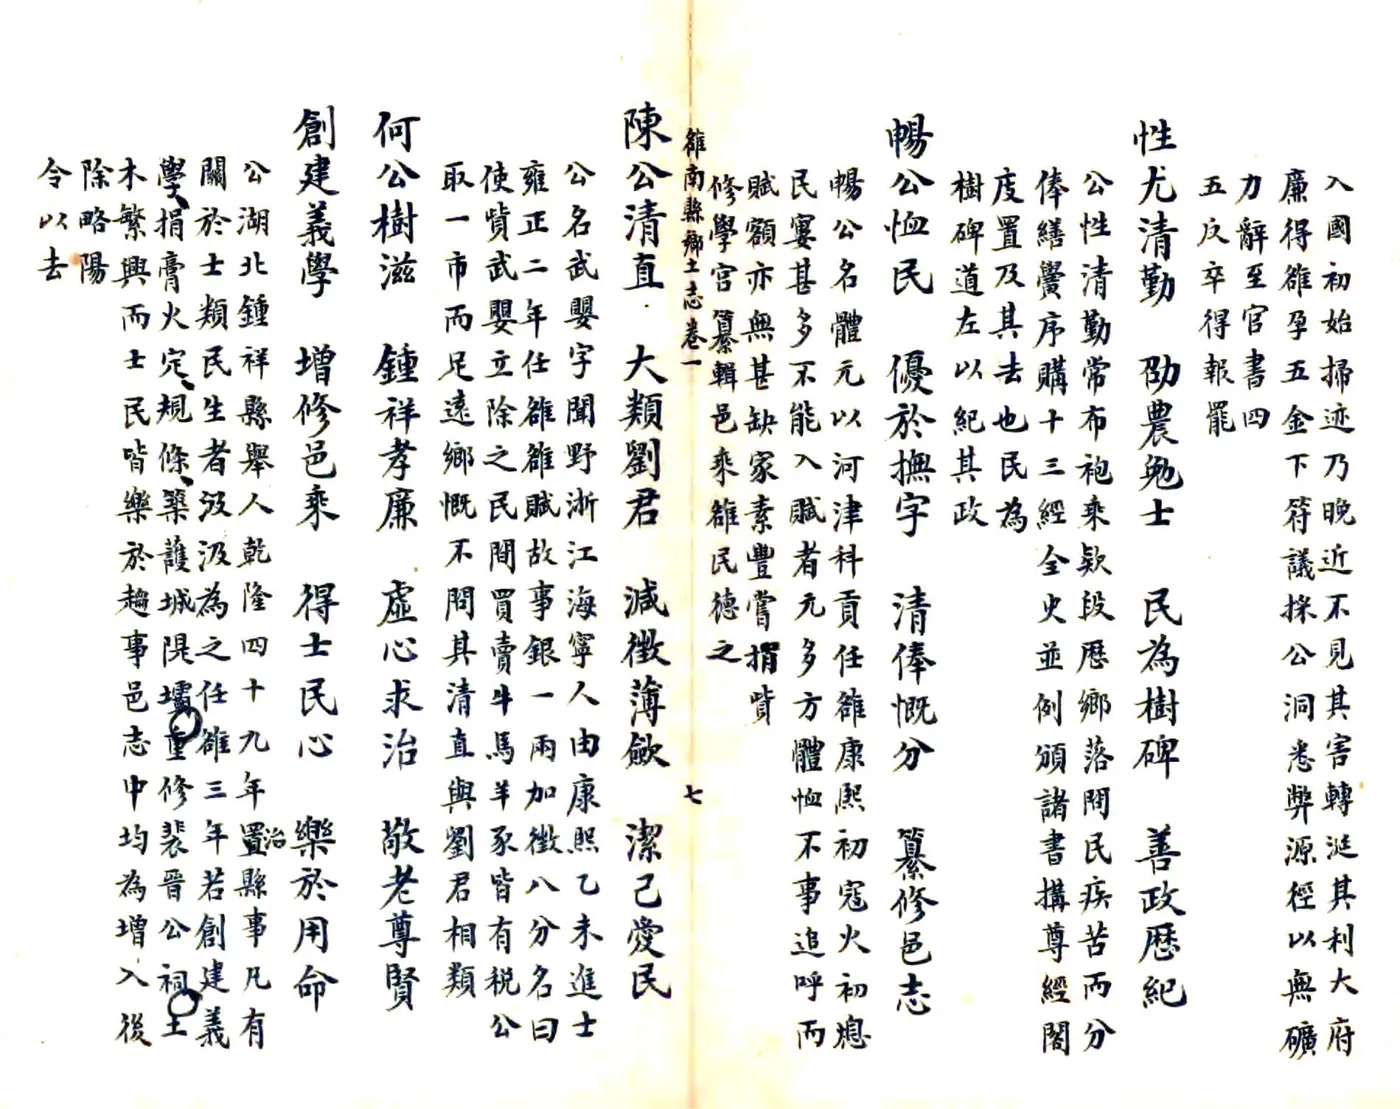 入國初始掃迹乃晚近不見其害轉涎其利大府
廉得雒孕五金下符議採公洞悉弊源徑以無礦
力辭至官書四
五反卒得報罷
性尤清勤　劭農勉士　民為樹碑　善政歷紀
公性清勤常布袍乘欵段歷鄉落問民疾苦而分
俸繕黌序購十三經全史並例頒諸書搆尊經閣
庋置及其去也民為
樹碑道左以紀其政
暢公恤民　優於撫字　清俸慨分　纂修邑志
暢公名體元以河津科貢任雒康熙初寇火初熄
民寠甚多不能入賦者元多方體恤不事追呼而
賦額亦無甚缺家素豐嘗捐貲
修學宮纂輯邑乘雒民德之
雒南縣鄉土志卷一　七
陳公清直　大類劉君　減徵薄歛　潔己愛民
公名武嬰字聞野浙江海寧人由康熙乙未進士
雍正二年任雒雒賦故事銀一兩加徵八分名曰
使貲武嬰立除之民間買賣牛馬羊豕皆有税公
取一市而足遠鄉慨不問其清直與劉君相類
何公樹滋　鍾祥孝廉　虛心求治　敬老尊賢
創建義學　增修邑乘　得士民心　樂於用命
公湖北鍾祥縣舉人乾隆四十九年置治縣事凡有
關於士類民生者汲汲為之任雒三年若創建義
學、捐膏火定、規條、築護城隄壩重修裴晉公祠土
木繁興而士民皆樂於趨事邑志中均為增入後
除略陽
令以去